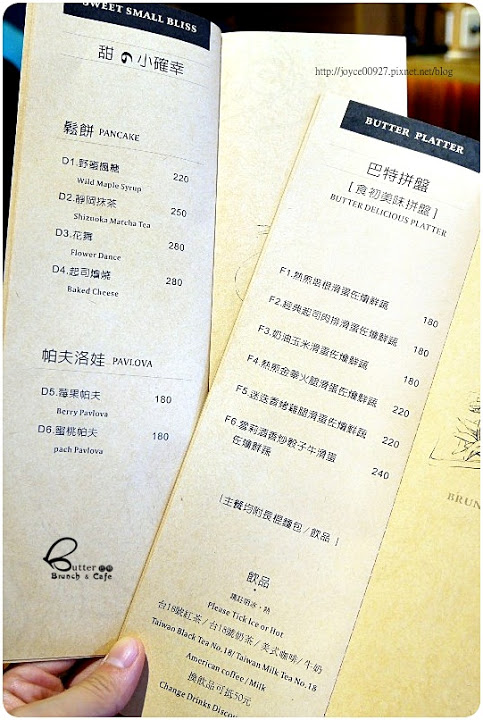 SWEET SMALL BLISS
甜の小確幸
鬆餅 PANCAKE
D1.野蜜楓糖 220
Wild Maple Syrup
D2.靜岡抹茶 250
Shizuoka Matcha Tea
D3.花舞 280
Flower Dance
D4.起司燔燒 280
Baked Cheese
帕夫洛娃 PAVLOVA
D5.莓果帕夫 180
Berry Pavlova
D6.蜜桃帕夫 180
pach Pavlova
Butter 巴特
Brunch & Cafe
http://joyce00927.pixnet.net/blog
BUTTER PLATTER
巴特拼盤
[ 食初美味拼盤 ]
BUTTER DELICIOUS PLATTER
F1.熱煎培根滑蛋佐燴鮮蔬 180
F2.經典起司肉排滑蛋佐燴鮮蔬 180
F3.奶油玉米滑蛋佐燴鮮蔬 180
F4.熱煎金華火腿滑蛋佐燴鮮蔬 180
F5.迷迭香烤雞腿滑蛋佐燴鮮蔬 220
F6.雪莉酒香炒骰子牛滑蛋 220
佐燴鮮蔬 240
[主餐均附長棍麵包/飲品 ]
飲品
請註明冰、熱
Please Tick Ice or Hot
台18號紅茶 / 台18號奶茶 / 美式咖啡 / 牛奶
Taiwan Black Tea No.18/ Taiwan Milk Tea No.18
American coffee / Milk
換飲品可抵50元
Change Drinks Discou
BRUN